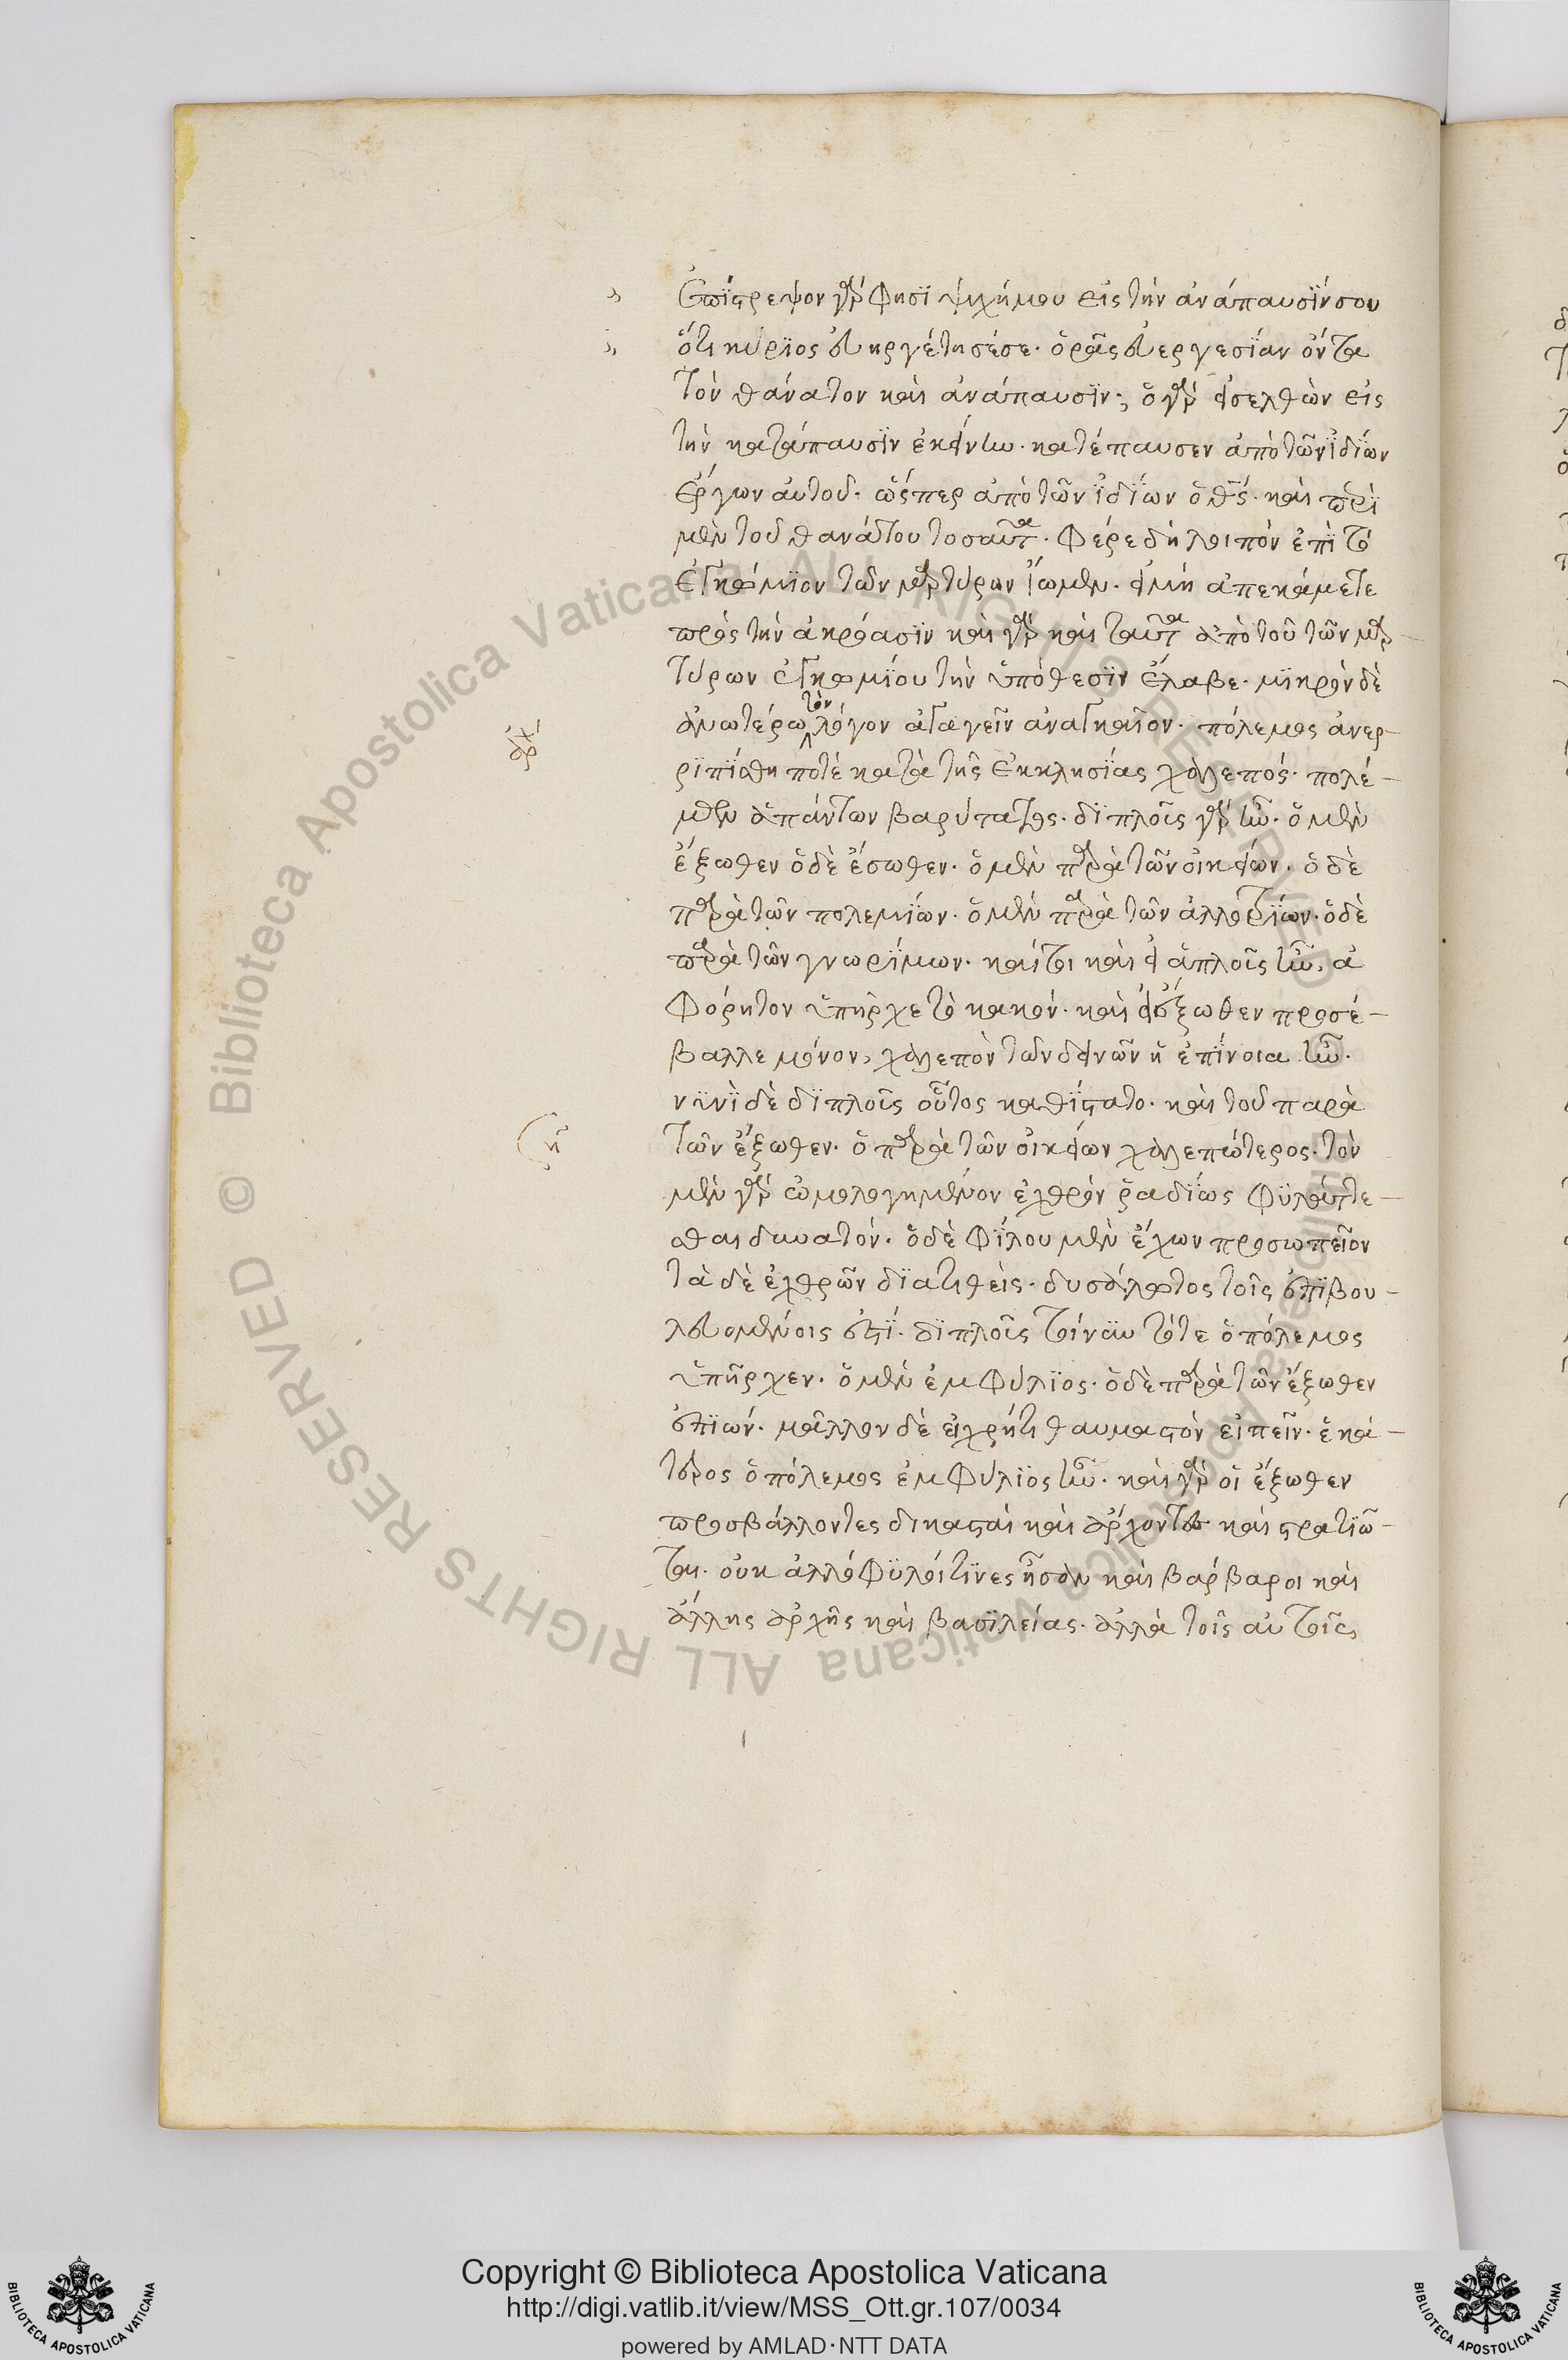 Ἐπίστρεψον γὰρ φησὶ ψυχή μου εἰς τὴν ἀνάπαυσίν σου
ὅτι κύριος εὐηργέτησέ σε· ὁρᾶς εὐεργεσίαν ὄντα
τὸν θάνατον καὶ ἀνάπαυσιν; ὁ γὰρ εἰσελθὼν εἰς
τὴν κατάπαυσιν ἐκείνην· κατέπαυσεν ἀπὸ τῶν ἰδίων
ἔργων αὐτοῦ· ὥσπερ ἀπὸ τῶν ἰδίων ὁ θς· καὶ περὶ
μὲν τοῦ θανάτου τοσαῦτα· φέρε δὴ λοιπὸν ἐπὶ τὸ
ἐγκώμιον τῶν μαρτύρων ἴωμεν· εἰ μὴ ἀπεκάμετε
πρὸς τὴν ἀκρόασιν καὶ γὰρ καὶ ταῦτα ἀπὸ τοῦ τῶν μαρ-
τύρων ἐγκωμίου τὴν ὑπόθεσιν ἔλαβε· μικρὸν δὲ
ἀνωτέρω τὸν λόγον ἀγαγεῖν ἀναγκαῖον· πόλεμος ἀνερ-
ριπίσθη ποτὲ κατὰ τῆς ἐκκλησίας χαλεπός· πολέ-
μων ἁπάντων βαρύτατος· διπλοῖς γὰρ ἦν· ὁ μὲν
ἔξωθεν ὁ δὲ ἔσωθεν· ὁ μὲν παρὰ τῶν οἰκείων· ὁ δὲ
παρὰ τῶν πολεμίων· ὁ μὲν παρὰ τῶν ἀλλοτρίων· ὁ δὲ
παρὰ τῶν γνωρίμων· καίτοι καὶ εἰ ἁπλοῖς ἦν, ἀ
φόρητον ὑπῆρχε τὸ κακόν· καὶ εἰ ἔξωθεν προσέ-
βαλλε μόνον, χαλεπὸν τῶν δεινῶν ἡ ἐπίνοια ἦν·
νυνὶ δὲ διπλοῖς οὗτος καθίστατο· καὶ τοῦ παρὰ
τῶν ἔξωθεν· ὁ παρὰ τῶν οἰκείων χαλεπώτερος· τὸν
μὲν γὰρ ὡμολογημένον ἐχθρὸν ῥαδίως φυλάττε-
σθαι δυνατόν· ὁ δὲ φίλου μὲν ἔχων προσωπεῖον
τὰ δὲ ἐχθρῶν διατιθεὶς· δυσάλωτος τοῖς ἐπιβου-
λευομένοις ἐστί· διπλοῖς τοίνυν τότε ὁ πόλεμος
ὑπῆρχεν· ὁ μὲν ἐμφύλιος· ὁ δὲ παρὰ τῶν ἔξωθεν
ἐπιών· μᾶλλον δὲ εἰ χρή τι θαυμαστὸν εἰπεῖν· ἑκά-
τερος ὁ πόλεμος ἐμφύλιος ἦν· καὶ γὰρ οἱ ἔξωθεν
προσβάλλοντες δικασταὶ καὶ ἄρχοντες καὶ στρατιῶ-
ται· οὐκ ἀλλόφυλοί τινες ἦσαν καὶ βάρβαροι καὶ
ἄλλης ἀρχῆς καὶ βασιλείας· ἀλλὰ τοῖς αὐτοῖς,
Copyright © Biblioteca Apostolica Vaticana
http://digi.vatlib.it/view/MSS_Ott.gr.107/0034
powered by AMLAD·NTT DATA
BIBLIOTECA APOSTOLICA VATICANA
BIBLIOTECA APOSTOLICA VATICANA
Biblioteca Apostolica Vaticana ALL RIGHTS RESERVED ©
Biblioteca Apostolica Vaticana ALL RIGHTS RESERVED ©